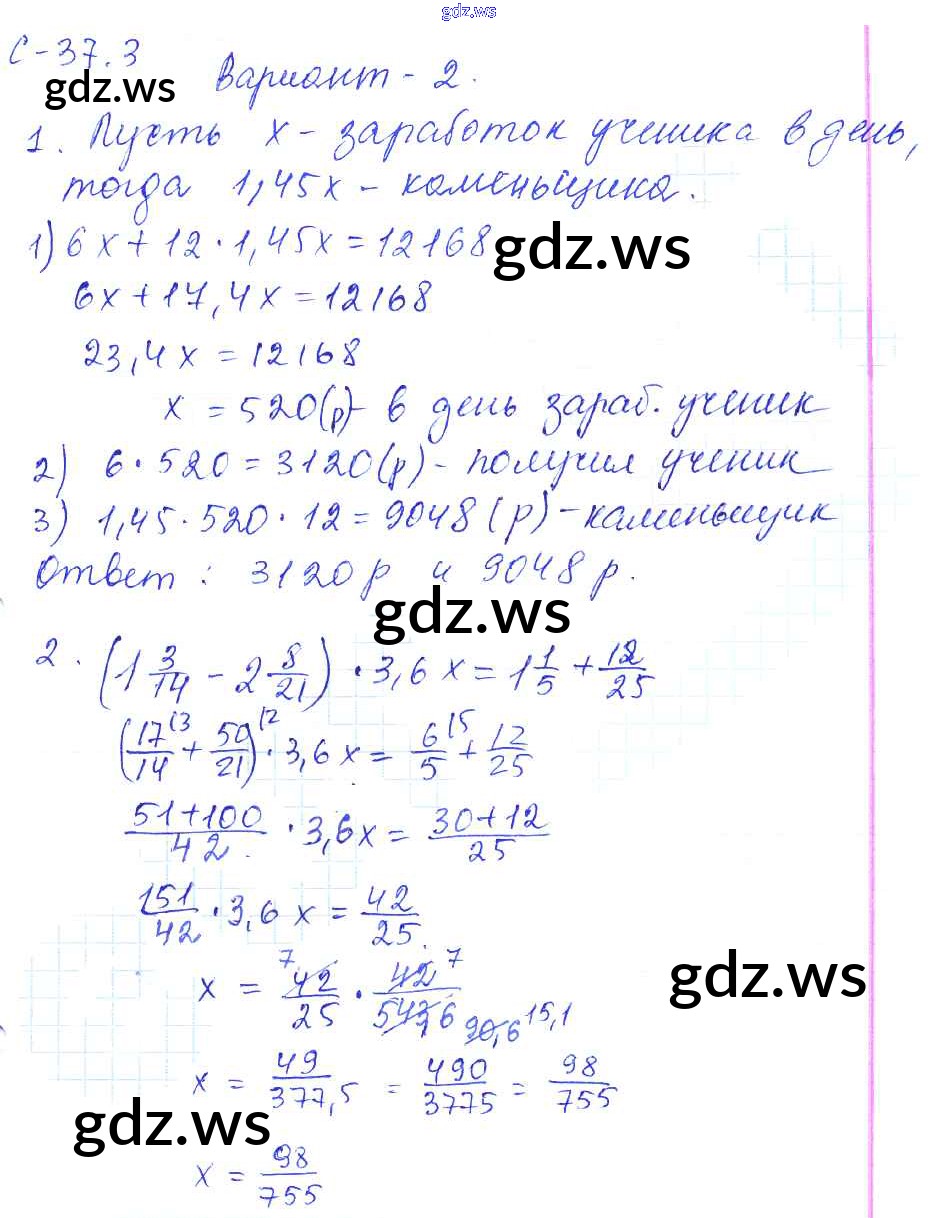 gdz.ws
С-37.3
gdz.ws
Вариант - 2.
1. Пусть x - заработок ученика в день,
тогда 1,45x - каменьщика.
1) 6x + 12 · 1,45x = 12168
gdz.ws
6x + 17,4x = 12168
23,4x = 12168
x = 520(р)- в день зараб. ученик
2) 6 · 520 = 3120(р) - получил ученик
3) 1,45 · 520 · 12 = 9048 (р) - каменьщик
Ответ : 3120р и 9048р.
gdz.ws
2. (1 3/14 - 2 8/21) · 3,6 x = 1 1/5 + 12/25
(17/14 (3 + 50/21 (2) · 3,6 x = 6/5 (5 + 12/25
51+100/42 · 3,6x = 30+12/25
151/42 · 3,6 x = 42/25
x = 42/25 7 · 42/543,6 7 90,6 15,1
gdz.ws
x = 49/377,5 = 490/3775 = 98/755
gdz.ws
x = 98/755